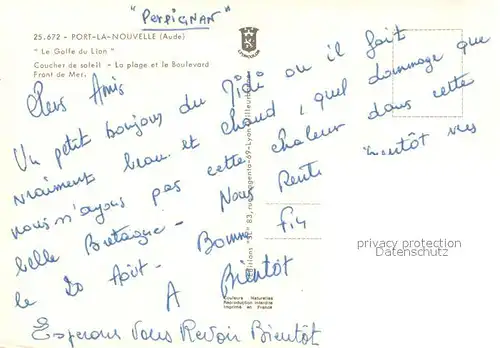 "PERPIGNAN"
25.672 - PORT-LA-NOUVELLE (Aude)
"Le Golfe du Lion"
Coucher de soleil - La plage et le Boulevard
Front de Mer.
Chers Amis
Un petit bonjour du Midi ou il fait
vraiment beau et chaud, quel dommage que
nous n'ayons pas cette chaleur dans cette
belle Bretagne - Nous
le 20 Août - Bonne fin
A Bientôt
Esperons Vous Revoir Bientôt
privacy protection
Datenschutz
Couleurs Naturelles
Reproduction interdite
Imprimé en France